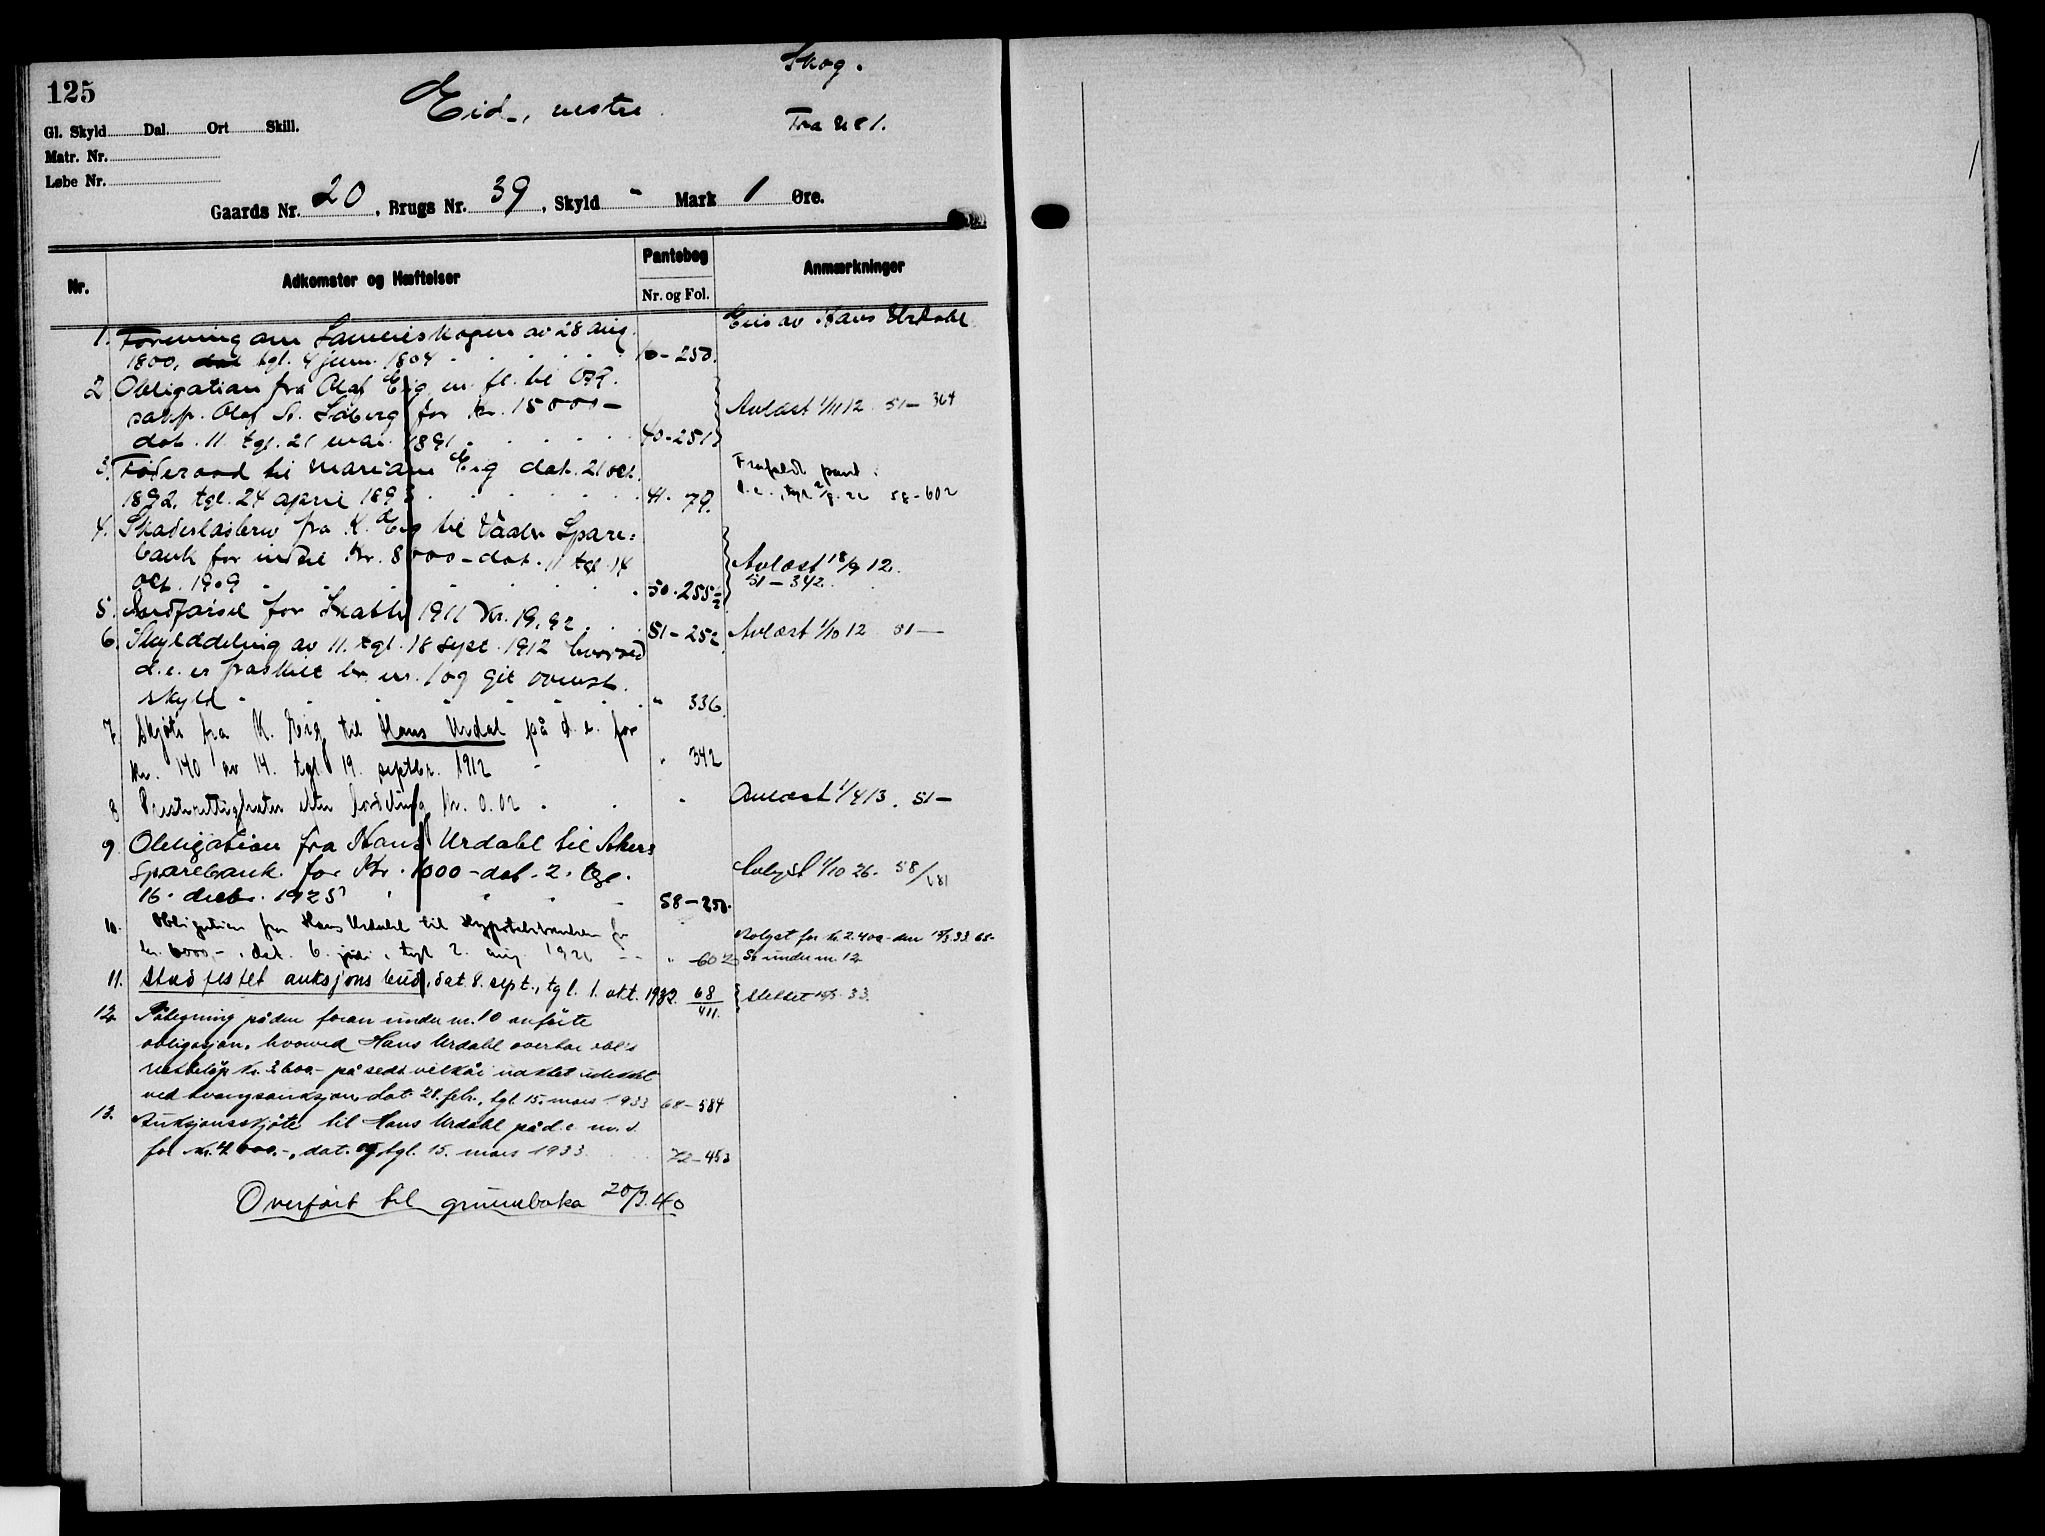 125
Skog.
Eid, vestre.
Fra 281.
Gl. Skyld Dal. Ort Skill.
Matr. Nr.
Løbe Nr.
Gaards Nr. 20, Brugs Nr. 39, Skyld - Mark 1 Øre.
Nr. Adkomster og Hæftelser Pantebog Nr. og Fol. Anmærkninger
Eies av Hans Urdahl
1. Forening om Sameieskogen av 28 aug.
1800, dat tgl. 4 juni 1804 10-250.
2 Obligation fra Olaf Eig m. fl. til
Olaf A. Søberg for Kr. 15000-
dat. 11 tgl. 21 mai 1891 40-251 Avlæst 1/11 12 51-364
3. Føderaad til Mariane Eig dat. 21 oct.
1892, tgl. 24 april 1893 41-79. Frafaldt pant.
d.e., tgl. 2/8.26 58-602
4. Skadesløsbrev fra K. Eig til Vaaler Spare-
bank for indtil Kr. 8000- dat. 11 tgl. 14
oct. 1909 50-255 1/2 Avlæst 18/9 12.
51-342
5. Utlæg for Skatter 1911 Kr. 19.92 51-252 Avlæst 1/10 12 51-
6. Skylddeling av 11. tgl. 18 sept. 1912 hvorved
d.e. er fraskilt br. nr. 1 og git ovenst.
skyld " 336.
7. Skjøte fra K. Eig til Hans Urdal på d.e. for
kr. 140 av 14. tgl 19. septbr. 1912 " 342
8 Presterettigheter efter fordeling Kr. 0.02 " Avlæst 1/4 13. 51-
9. Obligation fra Hans Urdahl til Akers
Sparebank for Kr. 1000- dat. 2. tgl.
16. decbr. 1925 58-250. Avlyst 1/10 26. 58/681
10. Obligation fra Hans Urdahl til Hypotekbanken for
kr. 6000,-, dat. 6. juli, tgl 2. aug 1926 " 602 Avlyst for kr. 2.400- den 15/3 33. 68-
Se under nr. 12
11. Stadfestet auksjonsbud, dat. 8. sept., tgl. 1. okt. 1932. 68/411. Slettet 15/3 33.
12. Påtegning på den foran under nr. 10 anførte
obligasjon, hvorved Hans Urdahl overtar obl's
restbeløp kr. 3600.- på sedv. vilkår uaktet utlektet
ved tvangsauksjon, dat. 28. febr., tgl. 15. mars 1933 68-584
13. Auksjonsskjøte til Hans Urdahl på d.e. m.v.
for kr. 4000.-, dat. og tgl. 15. mars 1933 72-453
Overført til grunnboka 20/9.40